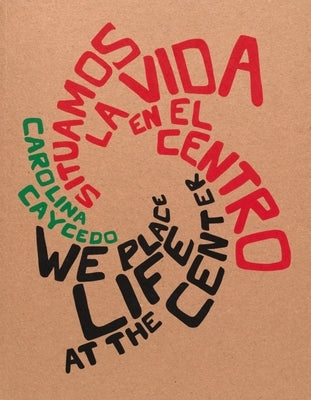 SITUAMOS
LA VIDA
EN EL
CENTRO
CAROLINA
CAYCEDO
WE PLACE
LIFE
AT THE
CENTER